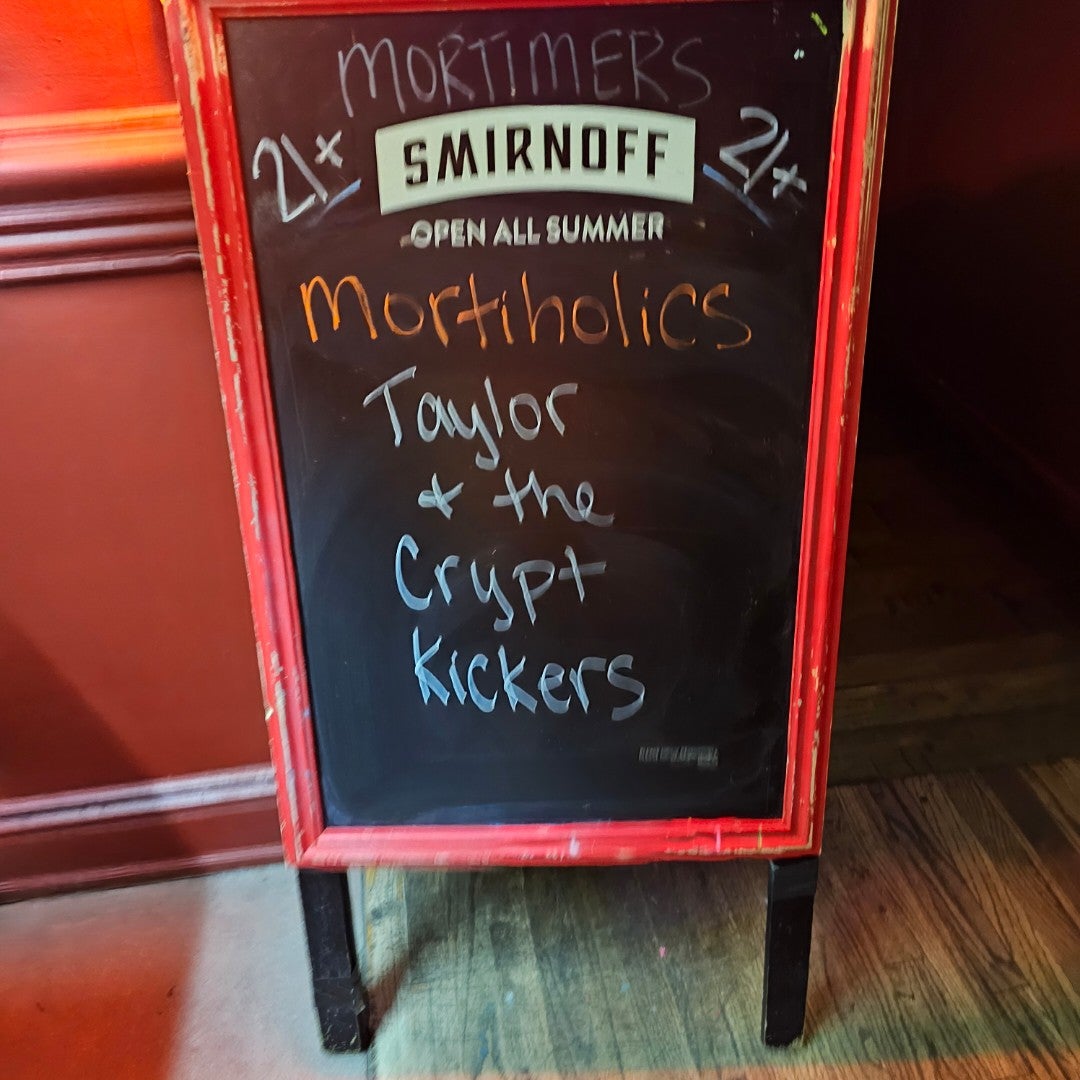 MORTIMERS
21+ SMIRNOFF 21+
OPEN ALL SUMMER
Mortiholics
Taylor
& the
Crypt
Kickers